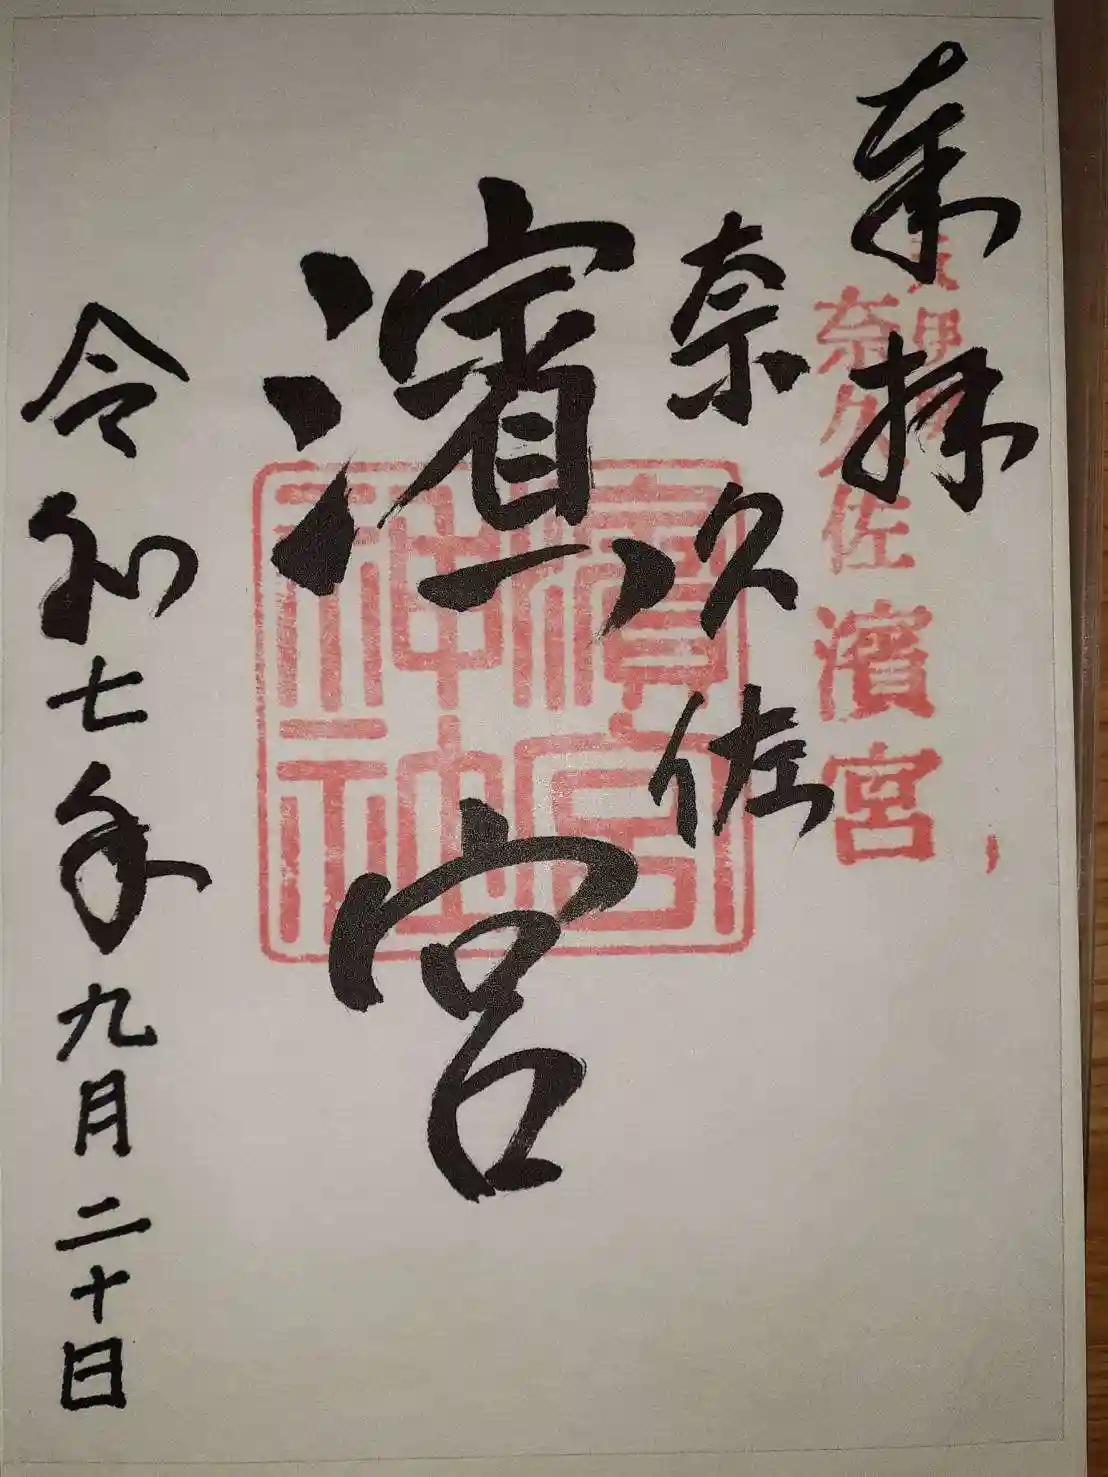 奉拝
奈久佐
濱宮
奈久佐
濱宮
濱宮神印
令和七年九月二十日